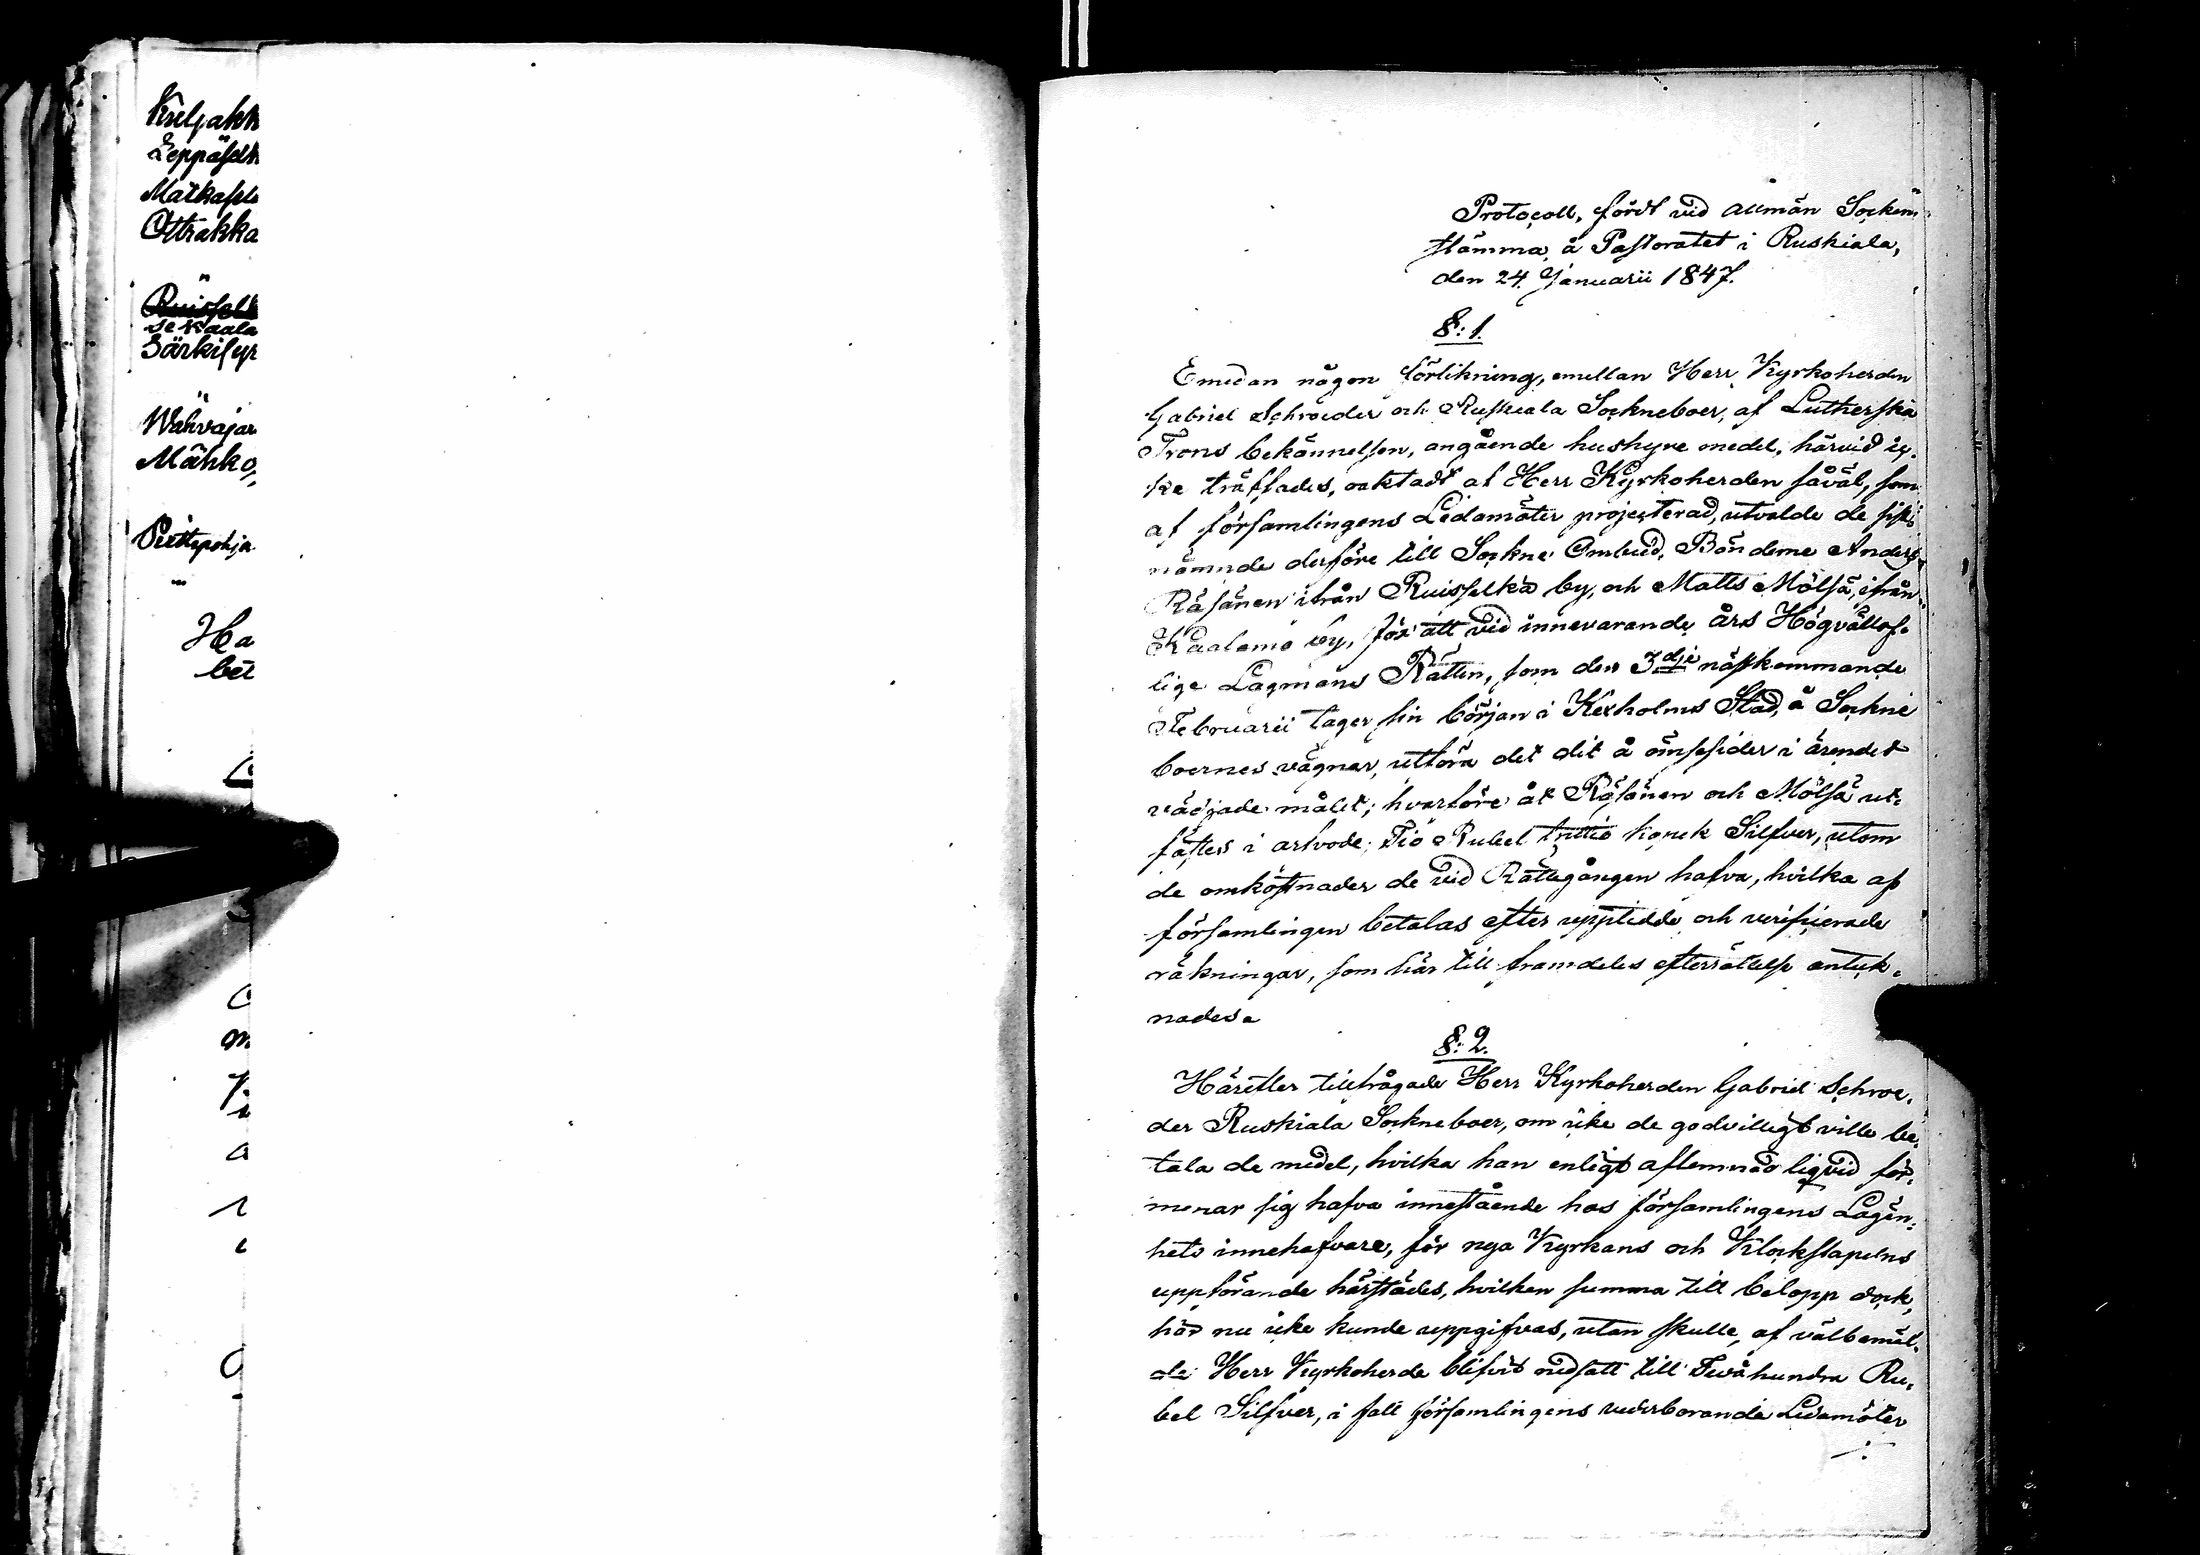 Kuljakk
Leppäselk
Matkasel
Otrakka
Ruisselk
Särkisyr
Mähkö
Ha
bet
Protocoll, fördt vid allmän Socken
stämma, å Pastoratet i Ruskiala,
den 24. Januarii 1847.
§: 1.
Emedan någon förlikning, emellan Herr Kyrkoherden
Gabriel Schroeder och Ruskiala Sockneboer, af Lutherska
Trons bekännelsen, angående hushyre medel, härvid ic-
ke träffades, oaktadt af Herr Kyrkoherden såväl, som
af församlingens Ledamöter projecterad, utvalde de sist-
nämnde derföre till Sockne Ombud, Bönderne Anders
Räsänen ifrån Ruisselkä by, och Matts Mölsä, ifrån
Kaalamo by, för att vid innevarande års Högvällof-
lige Lagmans Rätten, som den 3dje nästkommande
Februarii tager sin början i Kexholms Stad, å Sockne
boernes vägnar, utföra det dit å ömsesider i ärendet
vädjade målet; hvarföre åt Räsänen och Mölsä ut-
fästes i arfvode, Tio Rubel trettio kopek Silfver, utom
de omkostnader de vid Rättegången hafva, hvilka af
församlingen betalas efter upptedde och verificerade
räkningar, som här till framdeles efterrättelse anteck-
nades.
§: 2.
Härefter tillfrågade Herr Kyrkoherden Gabriel Schroe-
der Ruskiala Sockneboer, om icke de godvilligt ville be-
tala de medel, hvilka han enligt aflemnad liqvid för-
menar sig hafva innestående hos församlingens Lägen-
hets innehafvare, för nya Kyrkans och Klockstapelns
uppförande härstädes, hvilken summa till belopp dock,
här nu icke kunde uppgifvas, utan skulle, af välbemäl-
de Herr Kyrkoherde blifvit nedsatt till Tvåhundra Ru-
bel Silfver, i fall församlingens vederbörande Ledamöter
./.